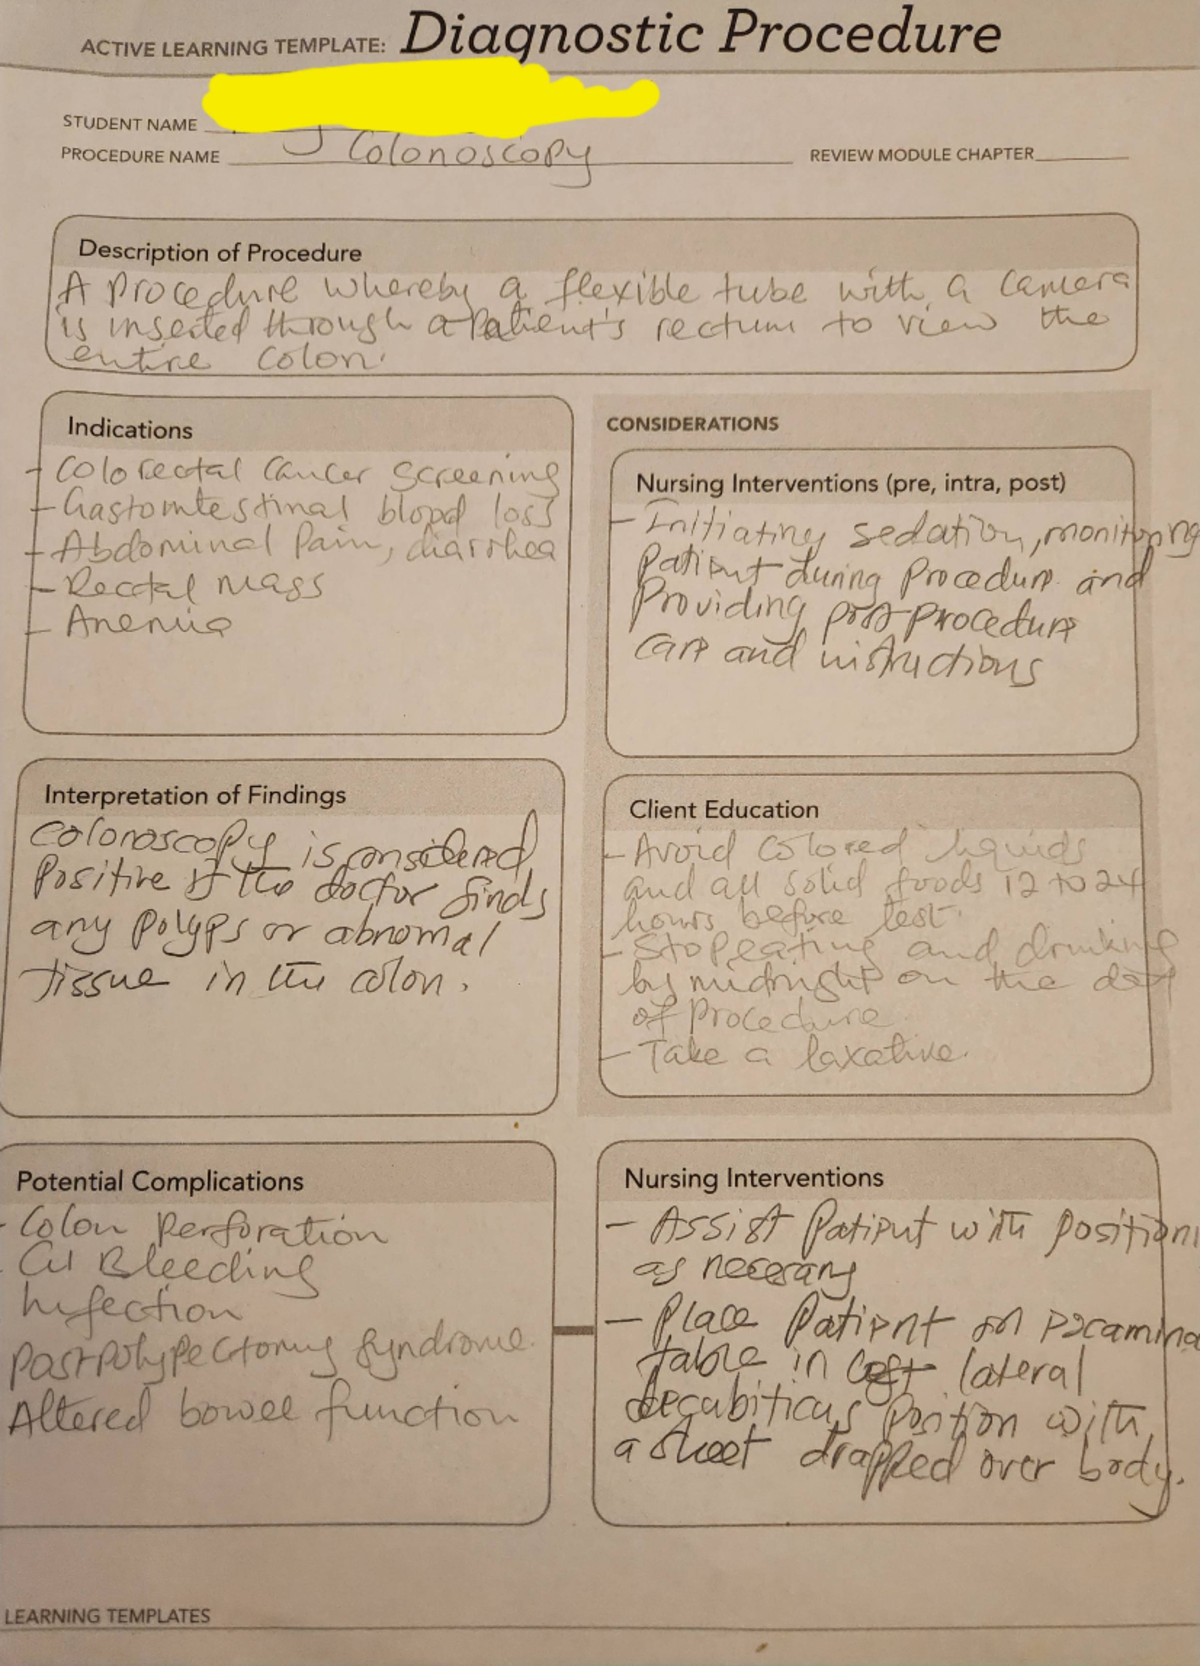 ACTIVE LEARNING TEMPLATE: Diagnostic Procedure
STUDENT NAME
PROCEDURE NAME Colonoscopy REVIEW MODULE CHAPTER
Description of Procedure
A Procedure whereby a flexible tube with a camera
is inserted through a Patient's rectum to view the
entire colon.
Indications
- Colorectal Cancer Screening
- Gastointestinal blood loss
- Abdominal Pain, diarrhea
- Rectal Mass
- Anemia
CONSIDERATIONS
Nursing Interventions (pre, intra, post)
- Initiating sedation, monitoring
patient during Procedure and
Providing post-procedure
care and instructions
Interpretation of Findings
Colonoscopy is considered
Positive if the doctor finds
any polyps or abnormal
tissue in the colon.
Client Education
- Avoid Colored liquids
and all solid foods 12 to 24
hours before test.
- Stop eating and drinking
by midnight on the day
of Procedure
- Take a laxative.
Potential Complications
- Colon Perforation
- GI Bleeding
Infection
Postpolypectomy Syndrome.
Altered bowel function
Nursing Interventions
- Assist Patient with position
as necesary
- Place Patient on examina
table in left lateral
decubiticus Position with
a sheet drapped over body.
LEARNING TEMPLATES